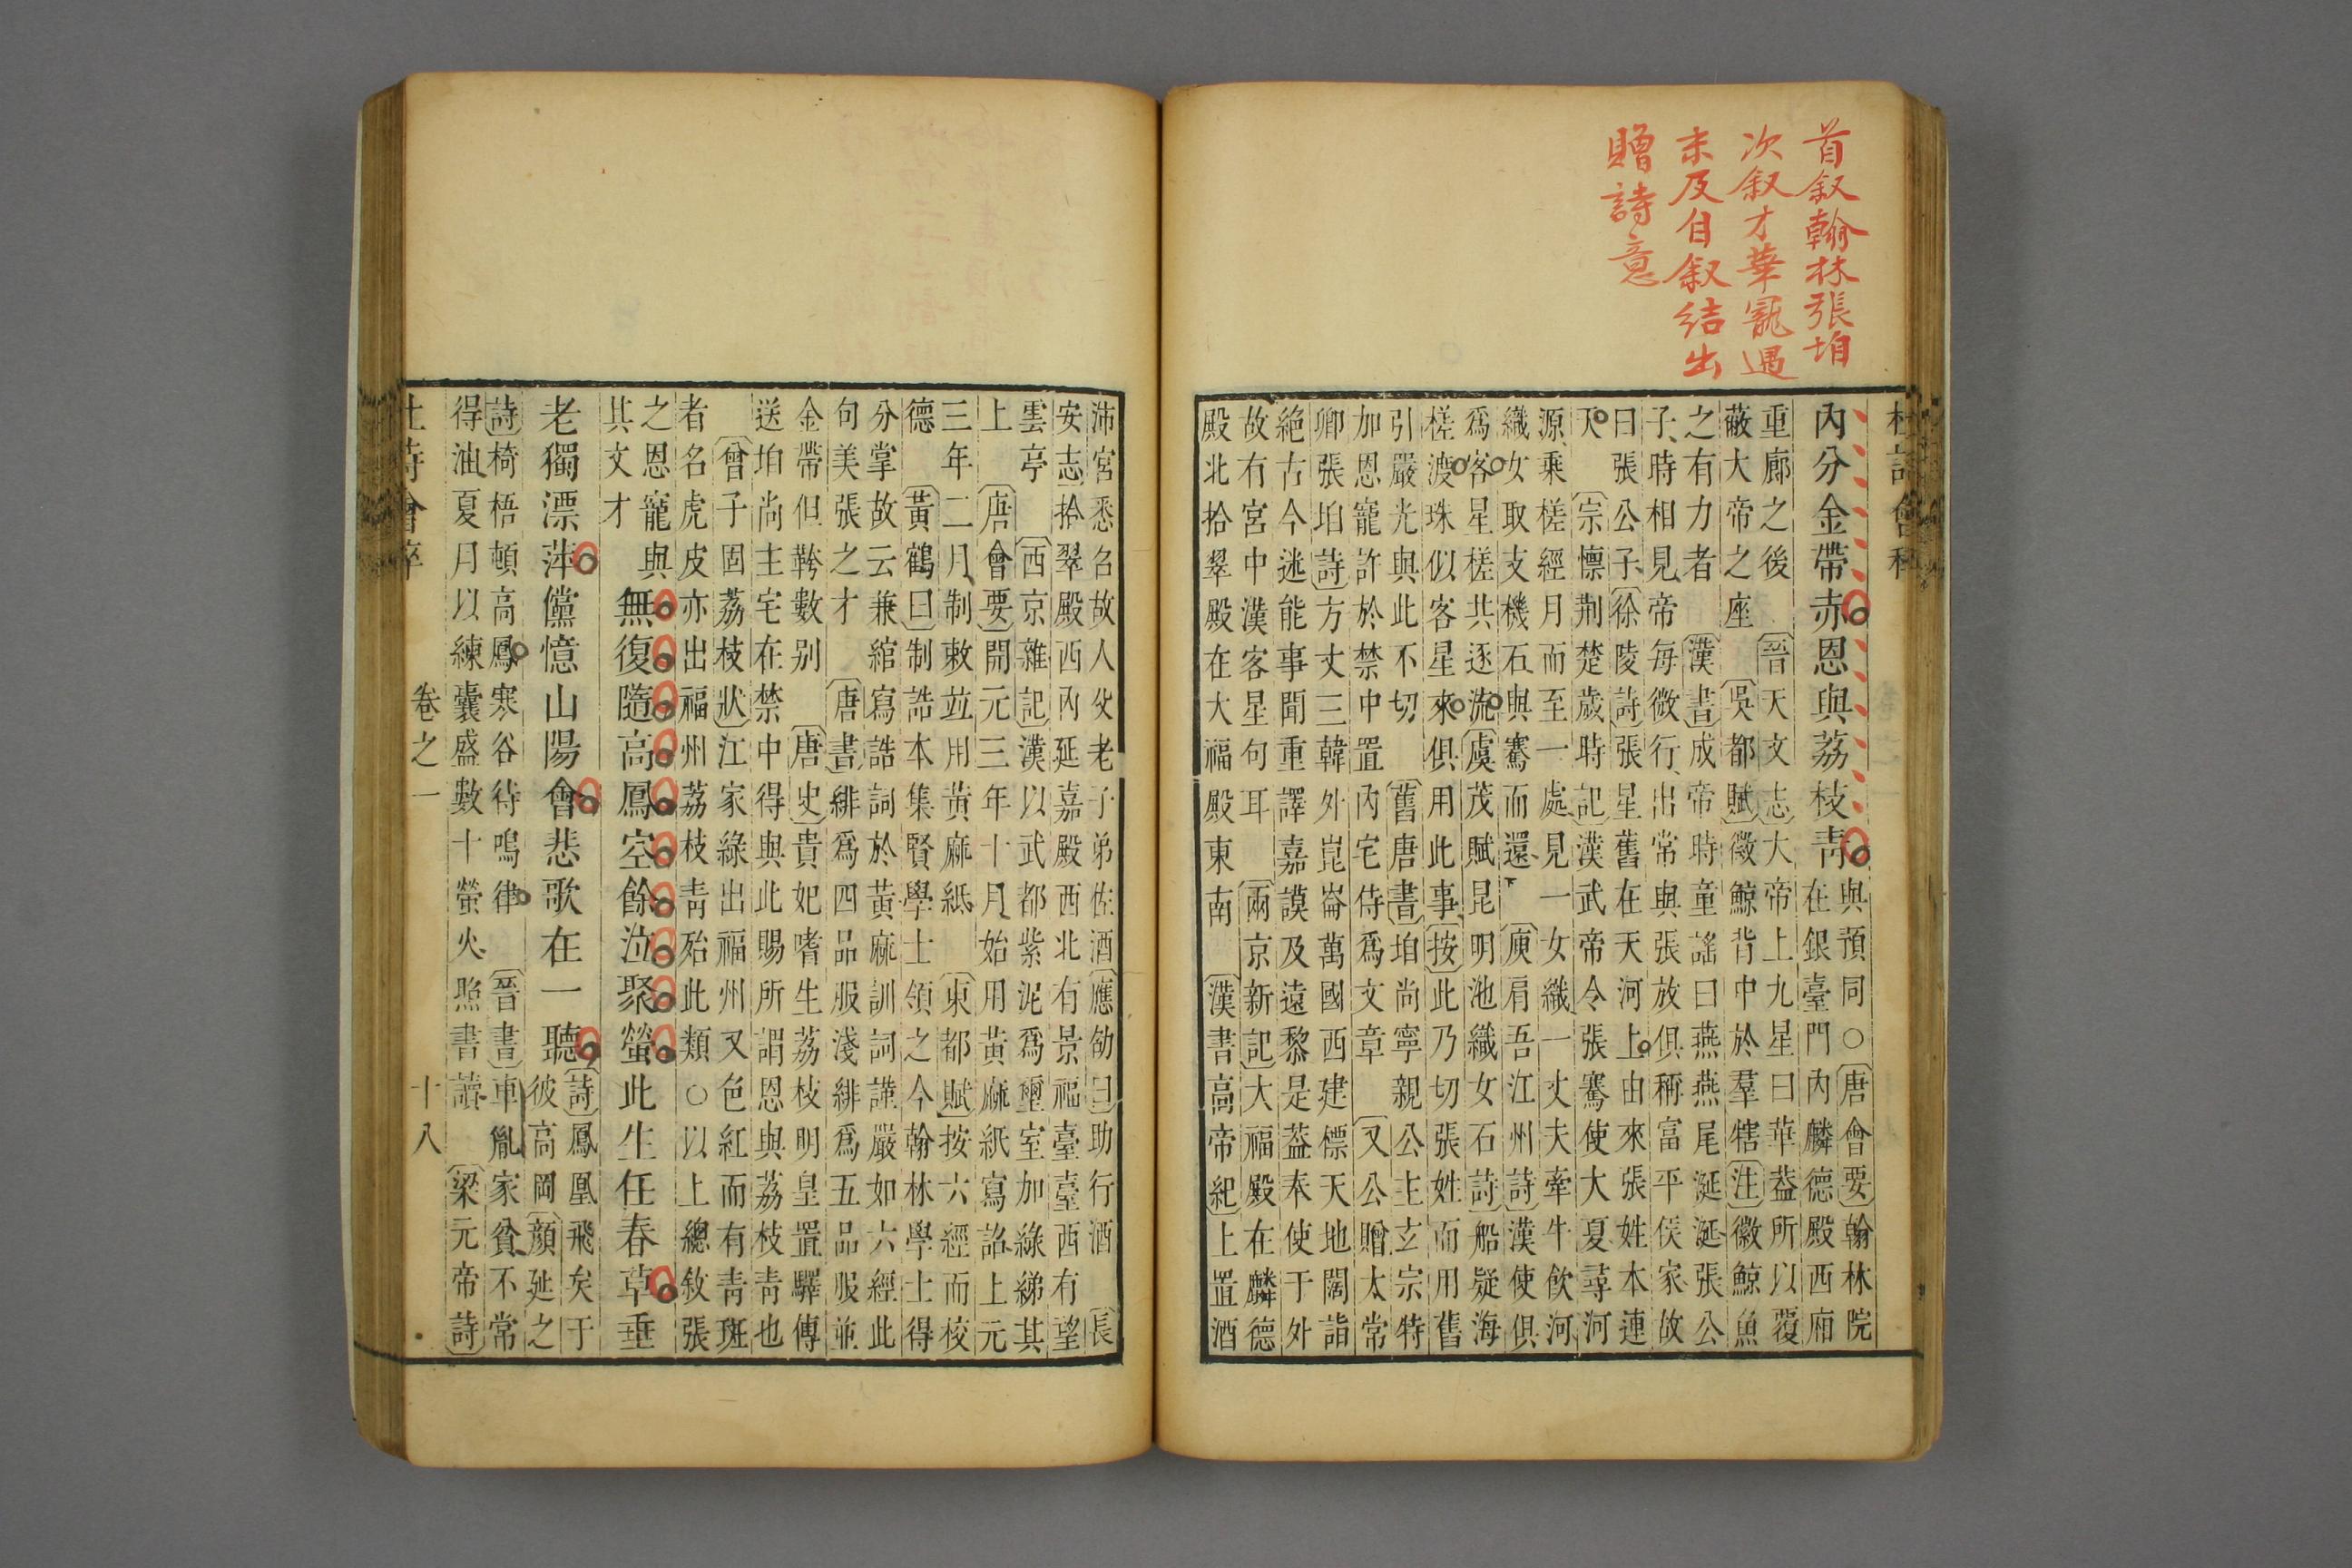 首叙翰林張垍
次叙才華寵遇
末及自叙結出
贈詩意
杜詩會稡
內分金帶赤恩與荔枝青
與預同○唐會要翰林院
在銀臺門內麟德殿西廂
重廊之後 晉天文志大帝上九星曰華葢所以覆
蔽大帝之座 吳都賦徽鯨背中於羣犗注徽鯨魚
之有力者 漢書成帝時童謡曰燕燕尾涎涎張公
子時相見帝每微行出常與張放俱稱富平侯家故
曰張公子徐陵詩張星舊在天河上由來張姓本連
天 宗懔荆楚歲時記漢武帝令張騫使大夏尋河
源乘槎經月而至一處見一女織一丈夫牽牛飲河
織女取支機石與騫而還 庾肩吾江州詩漢使俱
爲客星槎共逐流虞茂賦昆明池織女石詩船疑海
槎渡珠似客星來俱用此事按此乃切張姓而用舊
引嚴光與此不切 舊唐書垍尚寧親公主玄宗特
加恩寵許於禁中置內宅侍爲文章 又公贈太常
卿張垍詩方丈三韓外崑崙萬國西建標天地闊詣
絶古今迷能事聞重譯嘉謨及遠黎是葢奉使于外
故有宮中漢客星句耳 兩京新記大福殿在麟德
殿北拾翠殿在大福殿東南 漢書高帝紀上置酒
沛宮悉召故人父老子弟佐酒應劭曰助行酒 長
安志拾翠殿西內延嘉殿西北有景福臺臺西有望
雲亭 西京雜記漢以武都紫泥爲璽室加綠綈其
上 唐會要開元三年十月始用黃麻紙寫詔上元
三年二月制敕竝用黃麻紙 東都賦按六經而校
德 黃鶴曰制誥本集賢學士領之今翰林學士得
分掌故云兼綰寫誥詞於黃麻訓詞謹嚴如六經此
句美張之才 唐書緋爲四品服淺緋爲五品服並
金帶但鞶數別 唐史貴妃嗜生荔枝明皇置驛傳
送垍尚主宅在禁中得與此賜所謂恩與荔枝青也
曾子固荔枝狀江家綠出福州又色紅而有青斑
者名虎皮亦出福州荔枝青殆此類○以上總敘張
之恩寵與
其文才
無復隨高鳳空餘泣聚螢此生任春草垂
老獨漂萍儻憶山陽會悲歌在一聽
詩鳳凰飛矣于
彼高岡顏延之
詩椅梧頓高鳳寒谷待鳴律 晉書車胤家貧不常
得油夏月以練囊盛數十螢火照書讀 梁元帝詩
杜詩會稡 卷之一 十八